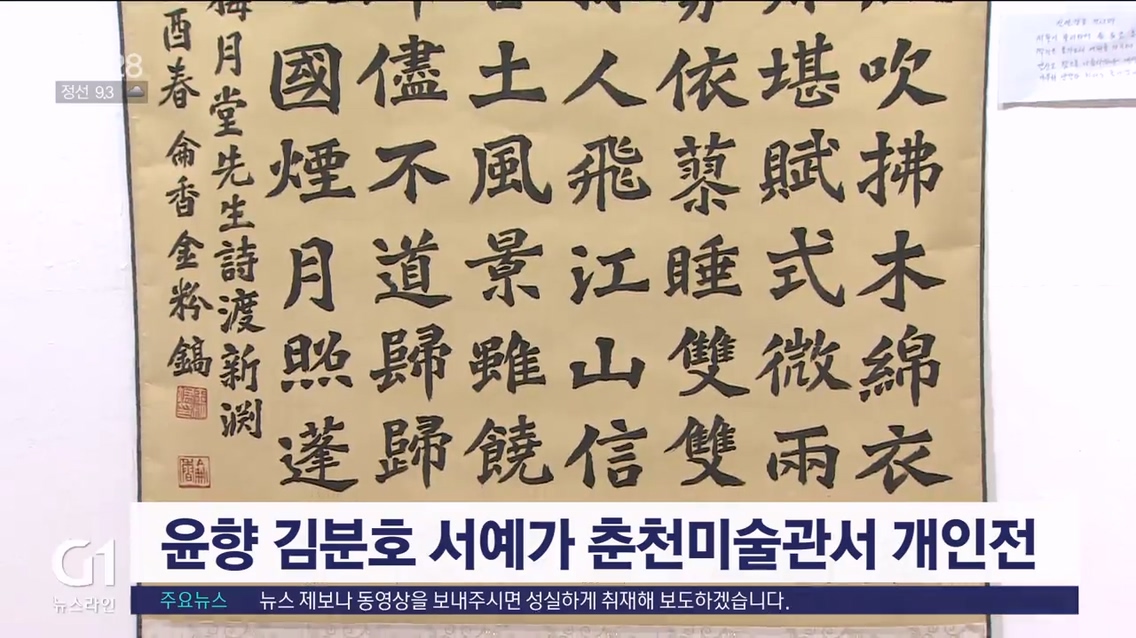 吹拂木綿衣
堪賦式微雨
依蓼睡雙雙
人飛江山信
土風景雖饒
儘不道歸歸
國煙月照蓬
梅月堂先生詩渡新渊
酉春 侖香金粉鎬
:28
정선 9.3
윤향 김분호 서예가 춘천미술관서 개인전
G1
뉴스라인
주요뉴스 뉴스 제보나 동영상을 보내주시면 성실하게 취재해 보도하겠습니다.